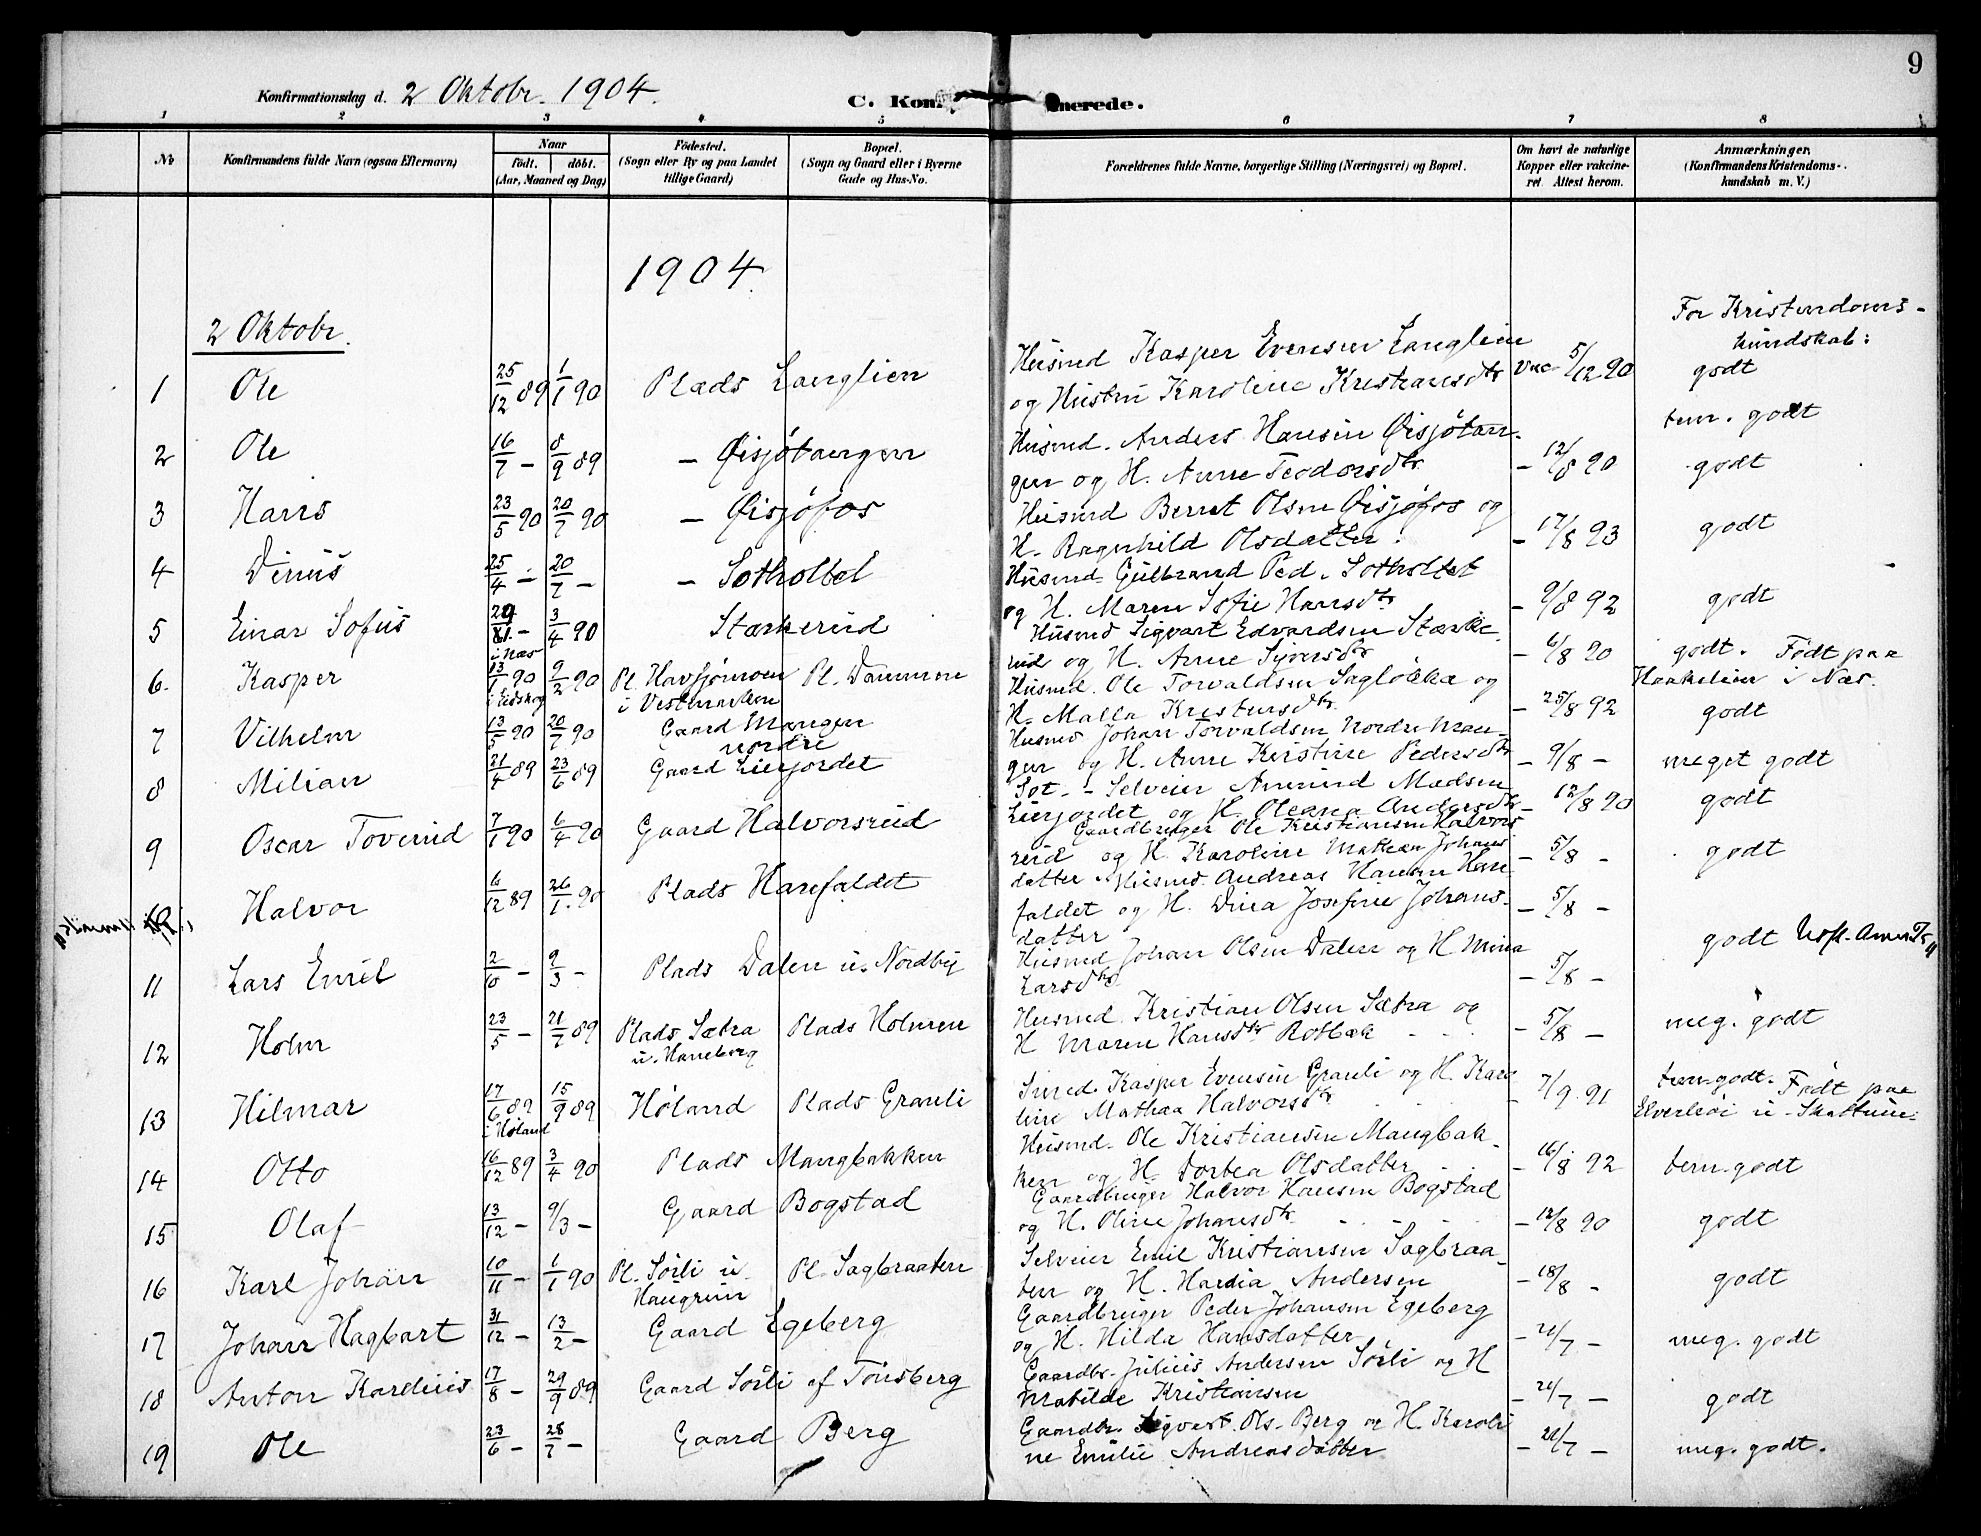 9
Konfirmationsdag d. 2 Oktobr. 1904.
C. Kon merede.
1 2 3 4 5 6 7 8
No
Konfirmandens fulde Navn (ogsaa Efternavn)
Naar
født. døbt.
(Aar, Maaned og Dag)
Fødested.
(Sogn eller By og paa Landet
tillige Gaard)
Bopæl.
(Sogn og Gaard eller i Byerne
Gade og Hus-No.
Forældrenes fulde Navne, borgerlige Stilling (Næringsvei) og Bopæl.
Om havt de naturlige
Kopper eller vakcine-
ret Attest herom.
Anmærkninger.
(Konfirmandens Kristendoms-
kundskab m. V.)
1904.
2 Oktobr.
For Kristendoms-
kundskab:
1 Ole 25/12 89 1/1 90 Plads Langlien
Husmd Kasper Evensen Langlien
og Hustru Karoline Kristiansdtr Vac 5/12 90 godt
2 Ole 16/7 - 8/9 89 - Øisjötangen
Husmd. Anders Hansen Øisjötan-
gen og H. Anne Teodorsdtr - 12/8 90 tem. godt
godt
3 Hans 23/5 90 20/7 90 - Øisjøfos
Husmd Bernt Olsen Øisjøfos og
H. Ragnhild Olsdatter. - 17/8 93 godt
4 Dinus 25/4 - 20/7 - - Sotholtet
Husmd. Gulbrand Ped. Sotholtet
og H. Maren Sofie Hansdtr - 9/8 92 godt
5 Einar Sofus 3/4 90 Stærkerud
i Næs
Husmd Sigvart Edvardsen Stærke
rud og H. Anne Syversdtr - 6/8 90 godt. Født paa
Haakeleien i Næs.
6. Kasper 13/1 90 9/2 90 Pl. Havsjømoen Pl. Dammen
i Eidskog i Vestmarken
Husmd. Ole Torvaldsen Sagløkka og
H. Malla Kristensdtr. - 25/8 92 godt
7 Vilhelm 13/5 90 20/7 90 Gaard Mangen
nordre
Husmd Johan Torvaldsen Nordre Man-
gen og H. Anne Kristine Pedersdtr - 9/8 - meget godt
8 Milian 21/4 89 23/6 89 Gaard Lierjordet
Sot. - Selveier Amund Madsen
Lierjordet og H. Oleana Andersdtr - 12/8 90 godt
9 Oscar Toverud 7/1 90 6/4 90 Gaard Halvorsrud
Gaardbruger Ole Kristiansen Halvors
rud og H. Karoline Mathea Johans
datter - 5/8 - godt
10 Halvor 6/12 89 26/1. 90 Plads Harefaldet
Husmd. Andreas Hansen Hare
faldet og H. Dina Josefine Johans-
datter - 5/8 - godt
11 Lars Emil 2/10 - 9/3 - Plads Dalen u. Nordby
Husmd Johan Olsen Dalen og H Mina
Larsdtr - 5/8 -
12 Holm 23/5 - 21/7 89 Plads Sætra Plads Holmen
u. Haneborg
Husmd Kristian Olsen Sætra og
H Maren Hansdtr Rotbæk - 5/8 - meg. godt
13 Hilmar 17/6 89 15/9 89 Høland Plads Granli
i Høland
Inred. Kasper Evensen Granli og H. Karo
line Mathea Halvorsdtr - 7/9 91 tem. godt. Født paa
14 Otto 16/12 89 3/4 90 Plads Mangbakken
Husmd. Ole Kristiansen Mangbak-
ken og H. Dortea Olsdatter - 16/8 92 tem. godt
15 Olaf 13/12 - 9/3 - Gaard Bogstad
Gaardbruger Halvor Hansen Bogstad
og H. Oline Johansdtr - 12/8 90 godt
16 Karl Johan 10/11 - 1/1 90 Pl. Sörli u. Pl. Sagbraaten
Haugrim
Selveier Emil Kristiansen Sagbraa-
ten og H. Hardia Andersen - 18/8 - godt
17 Johan Hagbart 31/12 - 13/2 - Gaard Egeberg
Gaardbruger Peder Johansen Egeberg
og H. Hilda Hansdatter - 21/7 - meg. godt
18 Anton Karelius 17/8 - 29/9 89 Gaard Sörli af Tönsberg
Gaardbr. Julius Andersen Sörli og H
Matilde Kristiansen - 21/7 - godt
19 Ole 23/6 - 28/7 - Gaard Berg
Gaardbr. Sigvart Ols. Berg og H. Karoli
ne Emilie Andreasdatter - 21/7 - meg. godt.